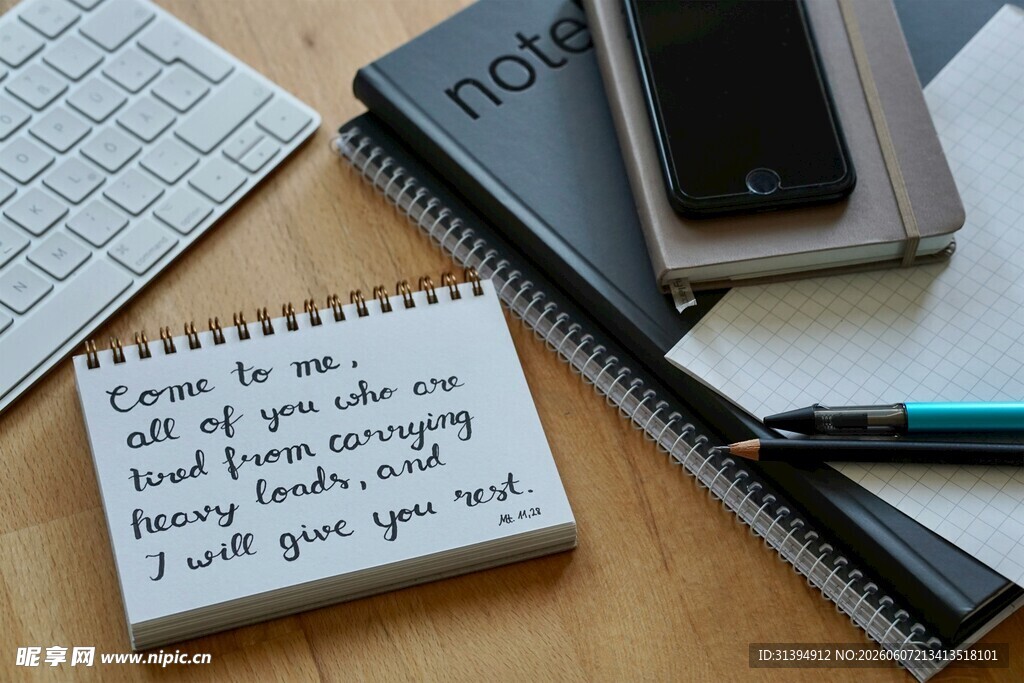 note
Come to me,
all of you who are
tired from carrying
heavy loads, and
I will give you rest.
Mt. 11,28
O
P
G
L
K
M
N
昵享网 www.nipic.cn
ID:31394912 NO:20260607213413518101